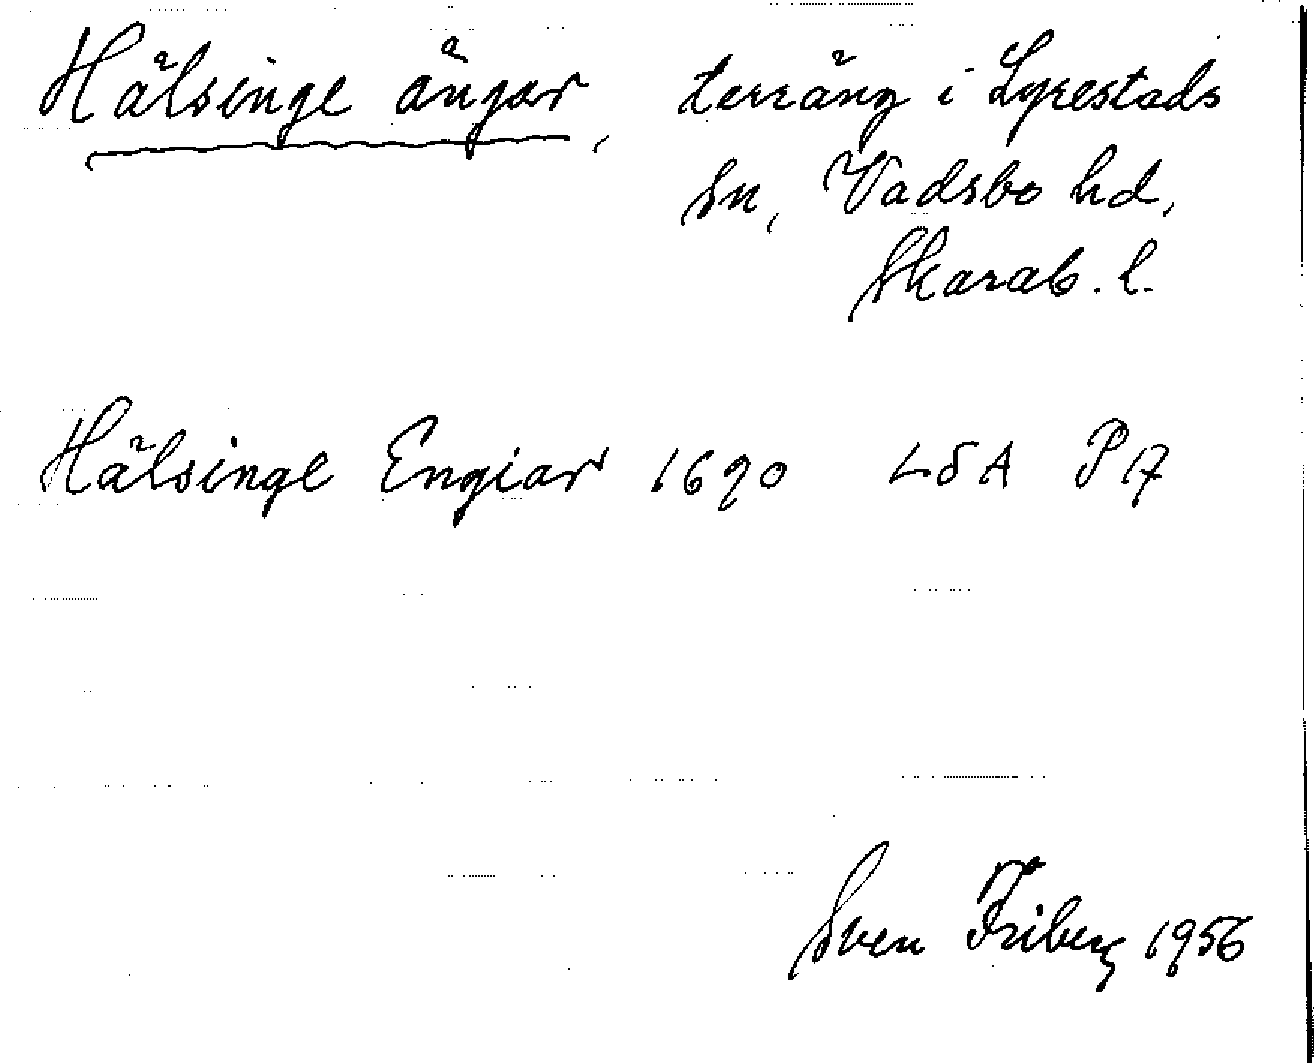 Hälsinge ängar, terräng i Lyrestads
sn, Vadsbo hd,
Skarab. l.
Hälsinge Engiar 1690 LSA P 17
Sven Friberg 1956